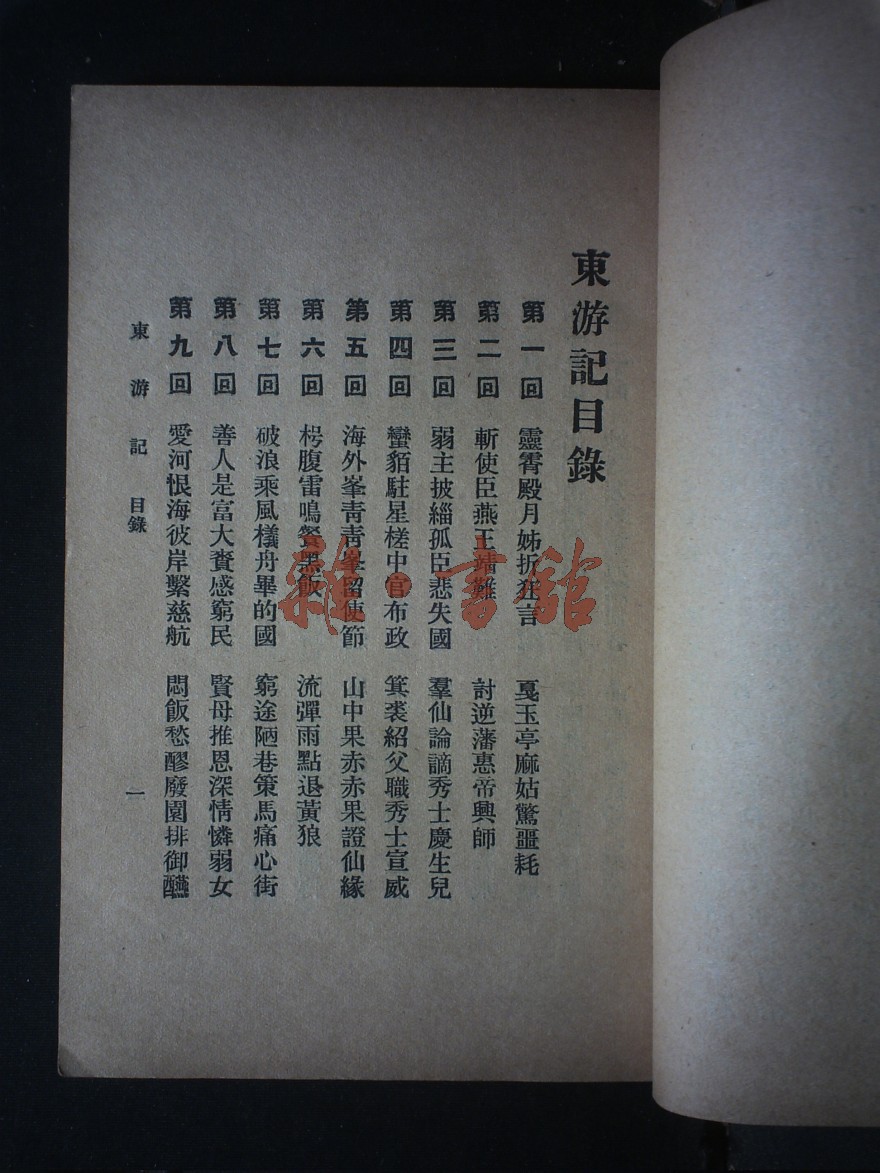 東游記目錄
第一回 靈霄殿月姊折狂言 戛玉亭麻姑驚噩耗
第二回 斬使臣燕王靖難 討逆藩惠帝興師
第三回 弱主披緇孤臣悲失國 羣仙論謫秀士慶生兒
第四回 蠻貊駐星槎中官布政 箕裘紹父職秀士宣威
第五回 海外峯靑靑峯留使節 山中果赤赤果證仙緣
第六回 枵腹雷鳴餐黑飯 流彈雨點退黃狼
第七回 破浪乘風檥舟畢的國 窮途陋巷策馬痛心街
第八回 善人是富大賚感窮民 賢母推恩深情憐弱女
第九回 愛河恨海彼岸繫慈航 悶飯愁醪廢園排御醼
東游記 目錄
一
雜·書館